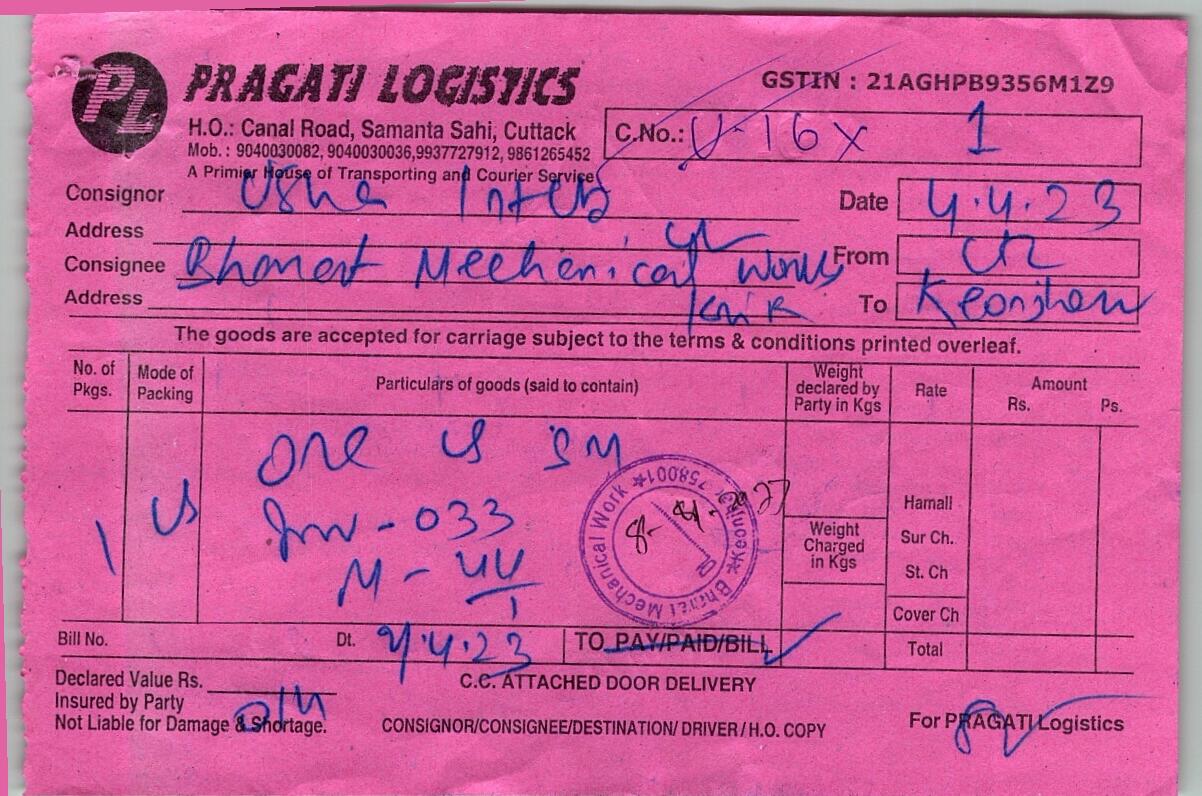 PL PRAGATI LOGISTICS
GSTIN : 21AGHPB9356M1Z9
H.O.: Canal Road, Samanta Sahi, Cuttack
C.No.: U-16x 1
Mob. : 9040030082, 9040030036,9937727912, 9861265452
A Primier House of Transporting and Courier Service
Consignor Usha
Date 4.4.23
Address
From
Consignee Bharat Mechanical Works
Address
To Keonjhar
The goods are accepted for carriage subject to the terms & conditions printed overleaf.
No. of Pkgs.
Mode of Packing
Particulars of goods (said to contain)
Weight declared by Party in Kgs
Rate
Amount
Rs. Ps.
1
one
Inv - 033
M - 44
1
Bharat Mechanical Work Keonjhar 758001
Weight Charged in Kgs
Hamall
Sur Ch.
St. Ch
Cover Ch
Bill No. Dt. 4.4.23 TO PAY/PAID/BILL
Total
Declared Value Rs.
C.C. ATTACHED DOOR DELIVERY
Insured by Party
Not Liable for Damage & Shortage.
CONSIGNOR/CONSIGNEE/DESTINATION/ DRIVER / H.O. COPY
For PRAGATI Logistics